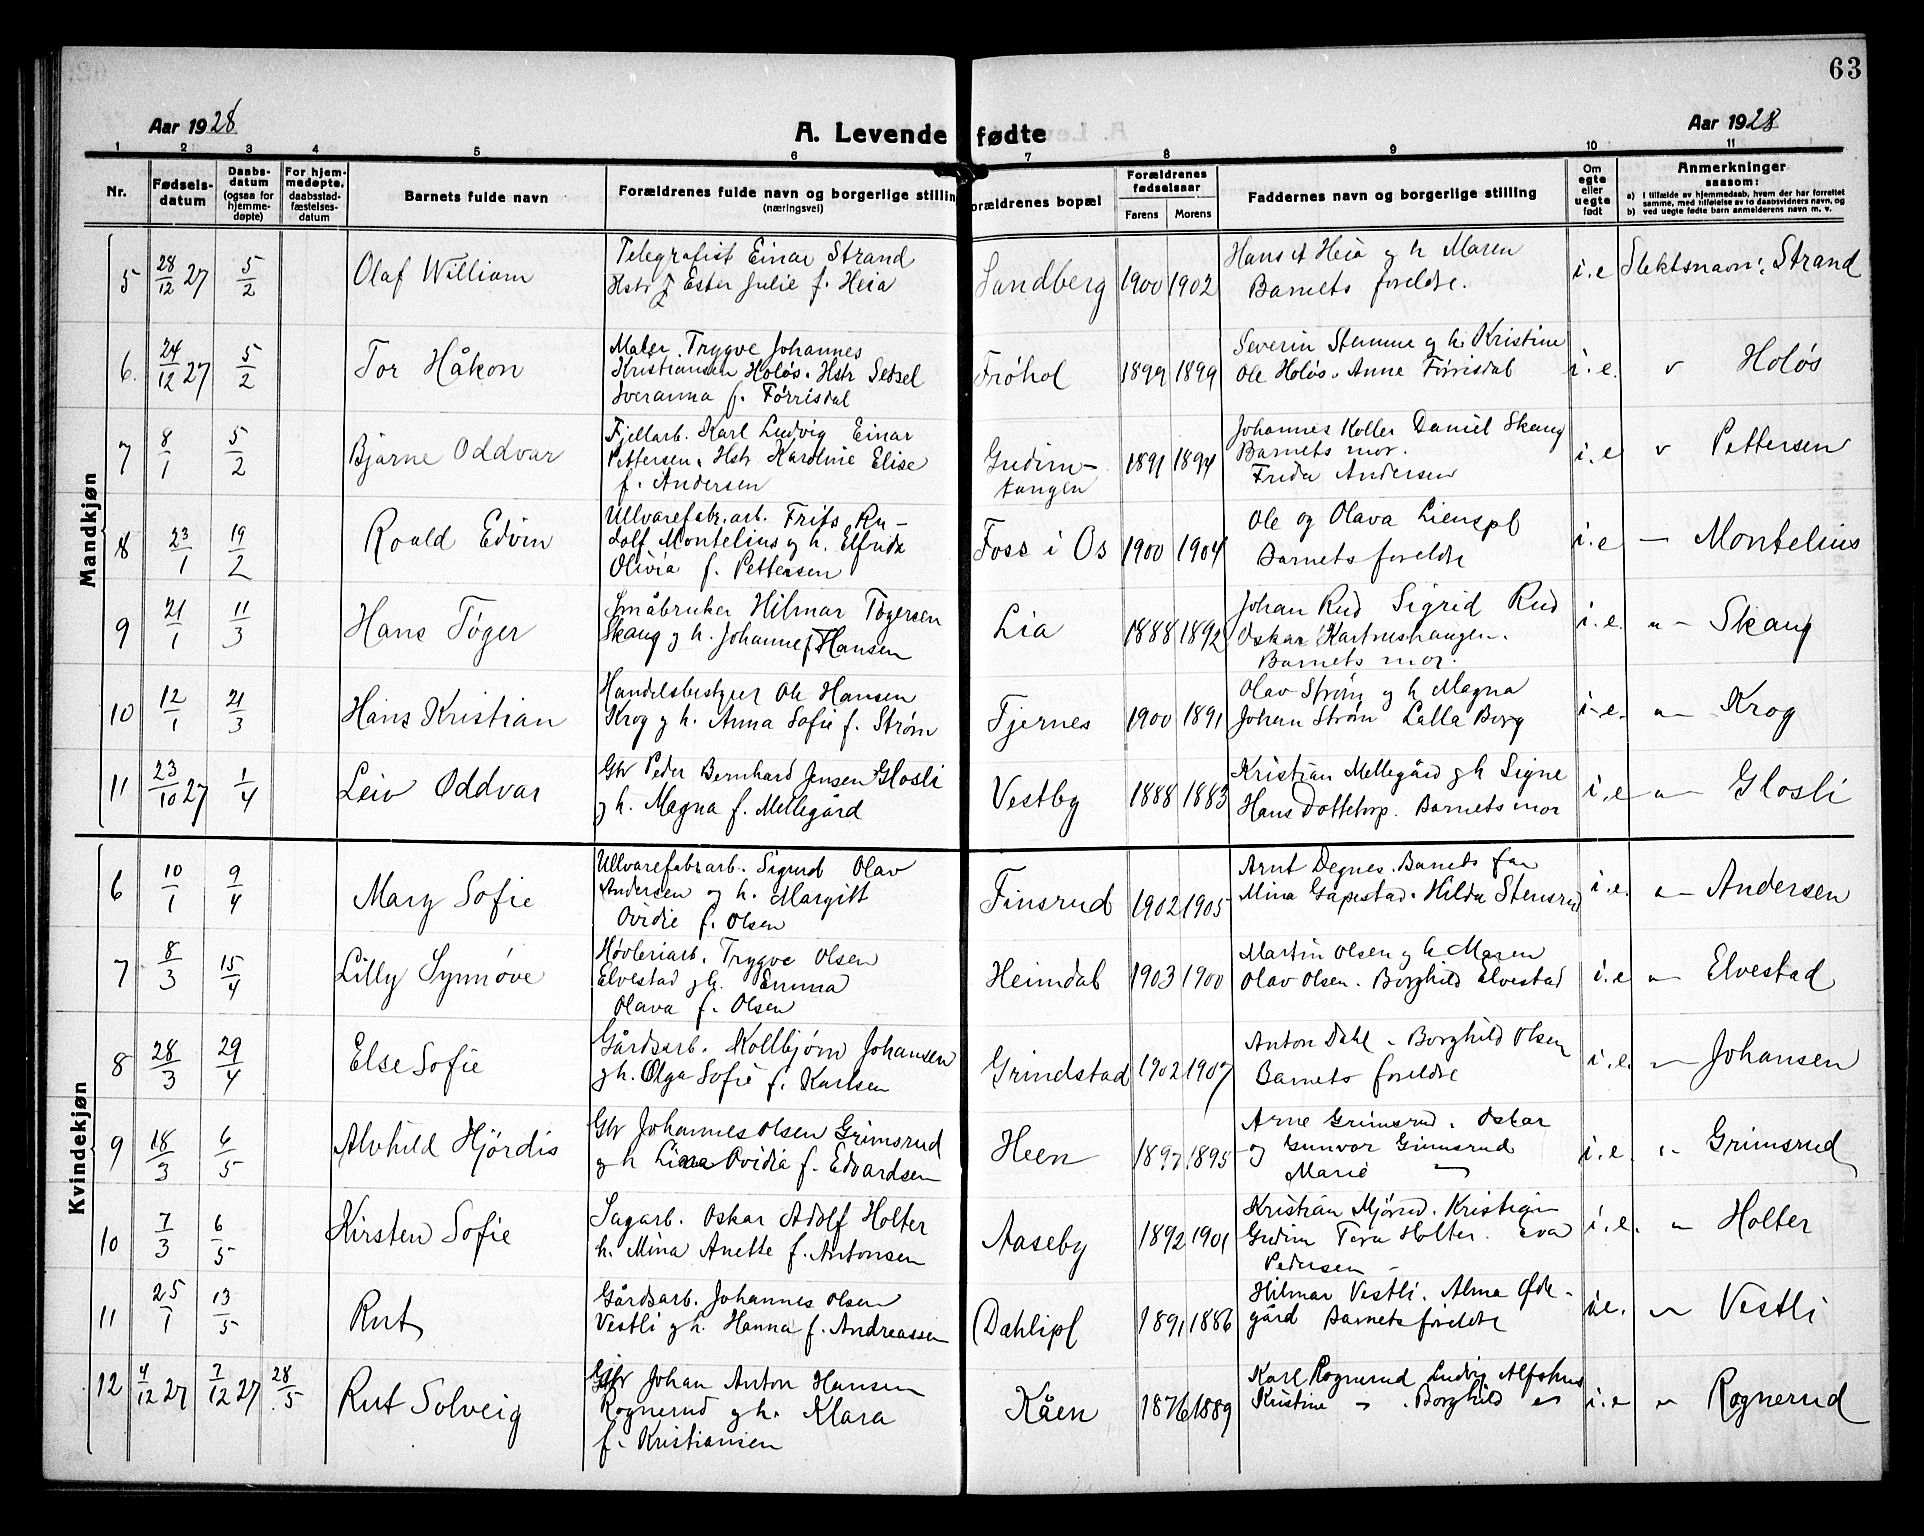 63
Aar 1928
A. Levende fødte
Aar 1928
1 2 3 4 5 6 7 8 9 10 11
Nr.
Fødsels-
datum
Daabs-
datum
(ogsaa for
hjemme-
døpte)
For hjem-
medøpte,
daabsstad-
fæstelses-
datum
Barnets fulde navn
Forældrenes fulde navn og borgerlige stilling
(næringsvei)
Forældrenes bopæl
Forældrenes
fødselsaar
Farens Morens
Faddernes navn og borgerlige stilling
Om
egte
eller
uegte
født
Anmerkninger
saasom:
a) I tilfælde av hjemmedaab, hvem der har forrettet
samme, med tilføielse av to daabsvidners navn, og
b) ved uegte fødte barn anmelderens navn m. v.
Mandkjøn
5 28/12 27 5/2 Olaf William
Telegrafist Einar Strand
Hstr Ester Julie f. Heia
Sandberg 1900 1902
Hans A Heia og h Maren
Barnets foreldre.
i.e Slektsnavn: Strand
6. 24/12 27 5/2 Tor Håkon
Maler Trygve Johannes
Kristiansen Holøs. Hstr Sedsel
Iveranna f. Førrisdal
Frøhol 1899 1899
Severin Stemme og h. Kristine
Ole Holøs. Anne Førrisdal
i.e. v Holøs
7 8/1 5/2 Bjarne Oddvar
Fjellarb. Karl Ludvig Einar
Pettersen. Hstr Karoline Elise
f. Andersen
Gudim-
tangen 1891 1894
Johannes Koller Daniel Skaug
Barnets mor.
Frida Andersen
i.e v Pettersen
8 23/1 19/2 Roald Edvin
Ullvarefabr.arb. Frits Ru-
dolf Montelius og h. Elfrida
Olivia f. Pettersen
Foss i Os 1900 1904
Ole og Olava Lienspl
Barnets foreldre
i.e — Montelius
9 21/1 11/3 Hans Tøger
Småbruker Hilmar Tøgersen
Skaug og h. Johanne f. Hansen
Lia 1888 1892
Johan Rud Sigrid Rud
Oskar
Barnets mor.
i.e. " – Skaug
10 12/1 21/3 Hans Kristian
Handelsbestyrer Ole Hansen
Krog og h. Anna Sofie f. Strøm
Tjernes 1900 1891
Olav Strøm og h Magna
Johan Strøm Lalla Borg
i.e. " – Krog
11 23/10 27 1/4 Leiv Oddvar
Gbr Peder Bernhard Jensen Glosli
og h. Magna f. Mellegård
Vestby 1888 1883
Kristian Mellegård og h Signe
Hans Dottetorp. Barnets mor
i.e " – Glosli
Kvindekjøn
6 10/1 9/4 Mary Sofie
Ullvarefabrarb. Sigurd Olav
Andersen og h. Margitt
Ovidie f. Olsen
Finsrud 1902 1905
Arnt Degnes. Barnets far
Mina Gapestad. Hilda Stensrud
i.e. " – Andersen
7 8/3 15/4 Lilly Synnøve
Høvleriarb. Trygve Olsen
Elvestad og h. Emma
Olava f. Olsen
Heimdal 1903 1900
Martin Olsen og h Maren
Olav Olsen. Borghild Elvestad
i.e " – Elvestad
8 28/3 29/4 Else Sofie
Gårdsarb. Kollbjørn Johansen
og h. Olga Sofie f. Karlsen
Grindstad 1902 1907
Anton Dahl. Borghild Olsen
Barnets foreldre
i.e. " – Johansen
9 18/3 6/5 Alvhild Hjørdis
Gbr Johannes Olsen Grimsrud
og h Lina Ovidia f. Edvardsen
Heen 1897 1895
Arne Grimsrud. Oskar
og Gunvor Grimsrud
Marie —
i.e. " – Grimsrud
10 7/3 6/5 Kirsten Sofie
Sagarb. Oskar Adolf Holter
h. Mina Anette f. Antonsen
Aaseby 1892 1901
Kristian Mjørud.
Gudim Tora Holter. Eva
Pedersen –
i.e. " – Holter
11 25/1 13/5 Rut
Gårdsarb. Johannes Olsen
Vestli og h. Hanna f. Andreassen
Dahlipl 1891 1886
Hilmar Vestli. Alma Øde-
gård Barnets foreldre
i.e. " – Vestli
12 4/12 27 7/12 27 28/5 Rut Solveig
Gbr Johan Anton Hansen
Rognerud og h. Klara
f. Kristiansen
Kåen 1876 1889
Karl Rognerud Ludvig Alfshus
Kristine – . Borghild –
i.e " – Rognerud